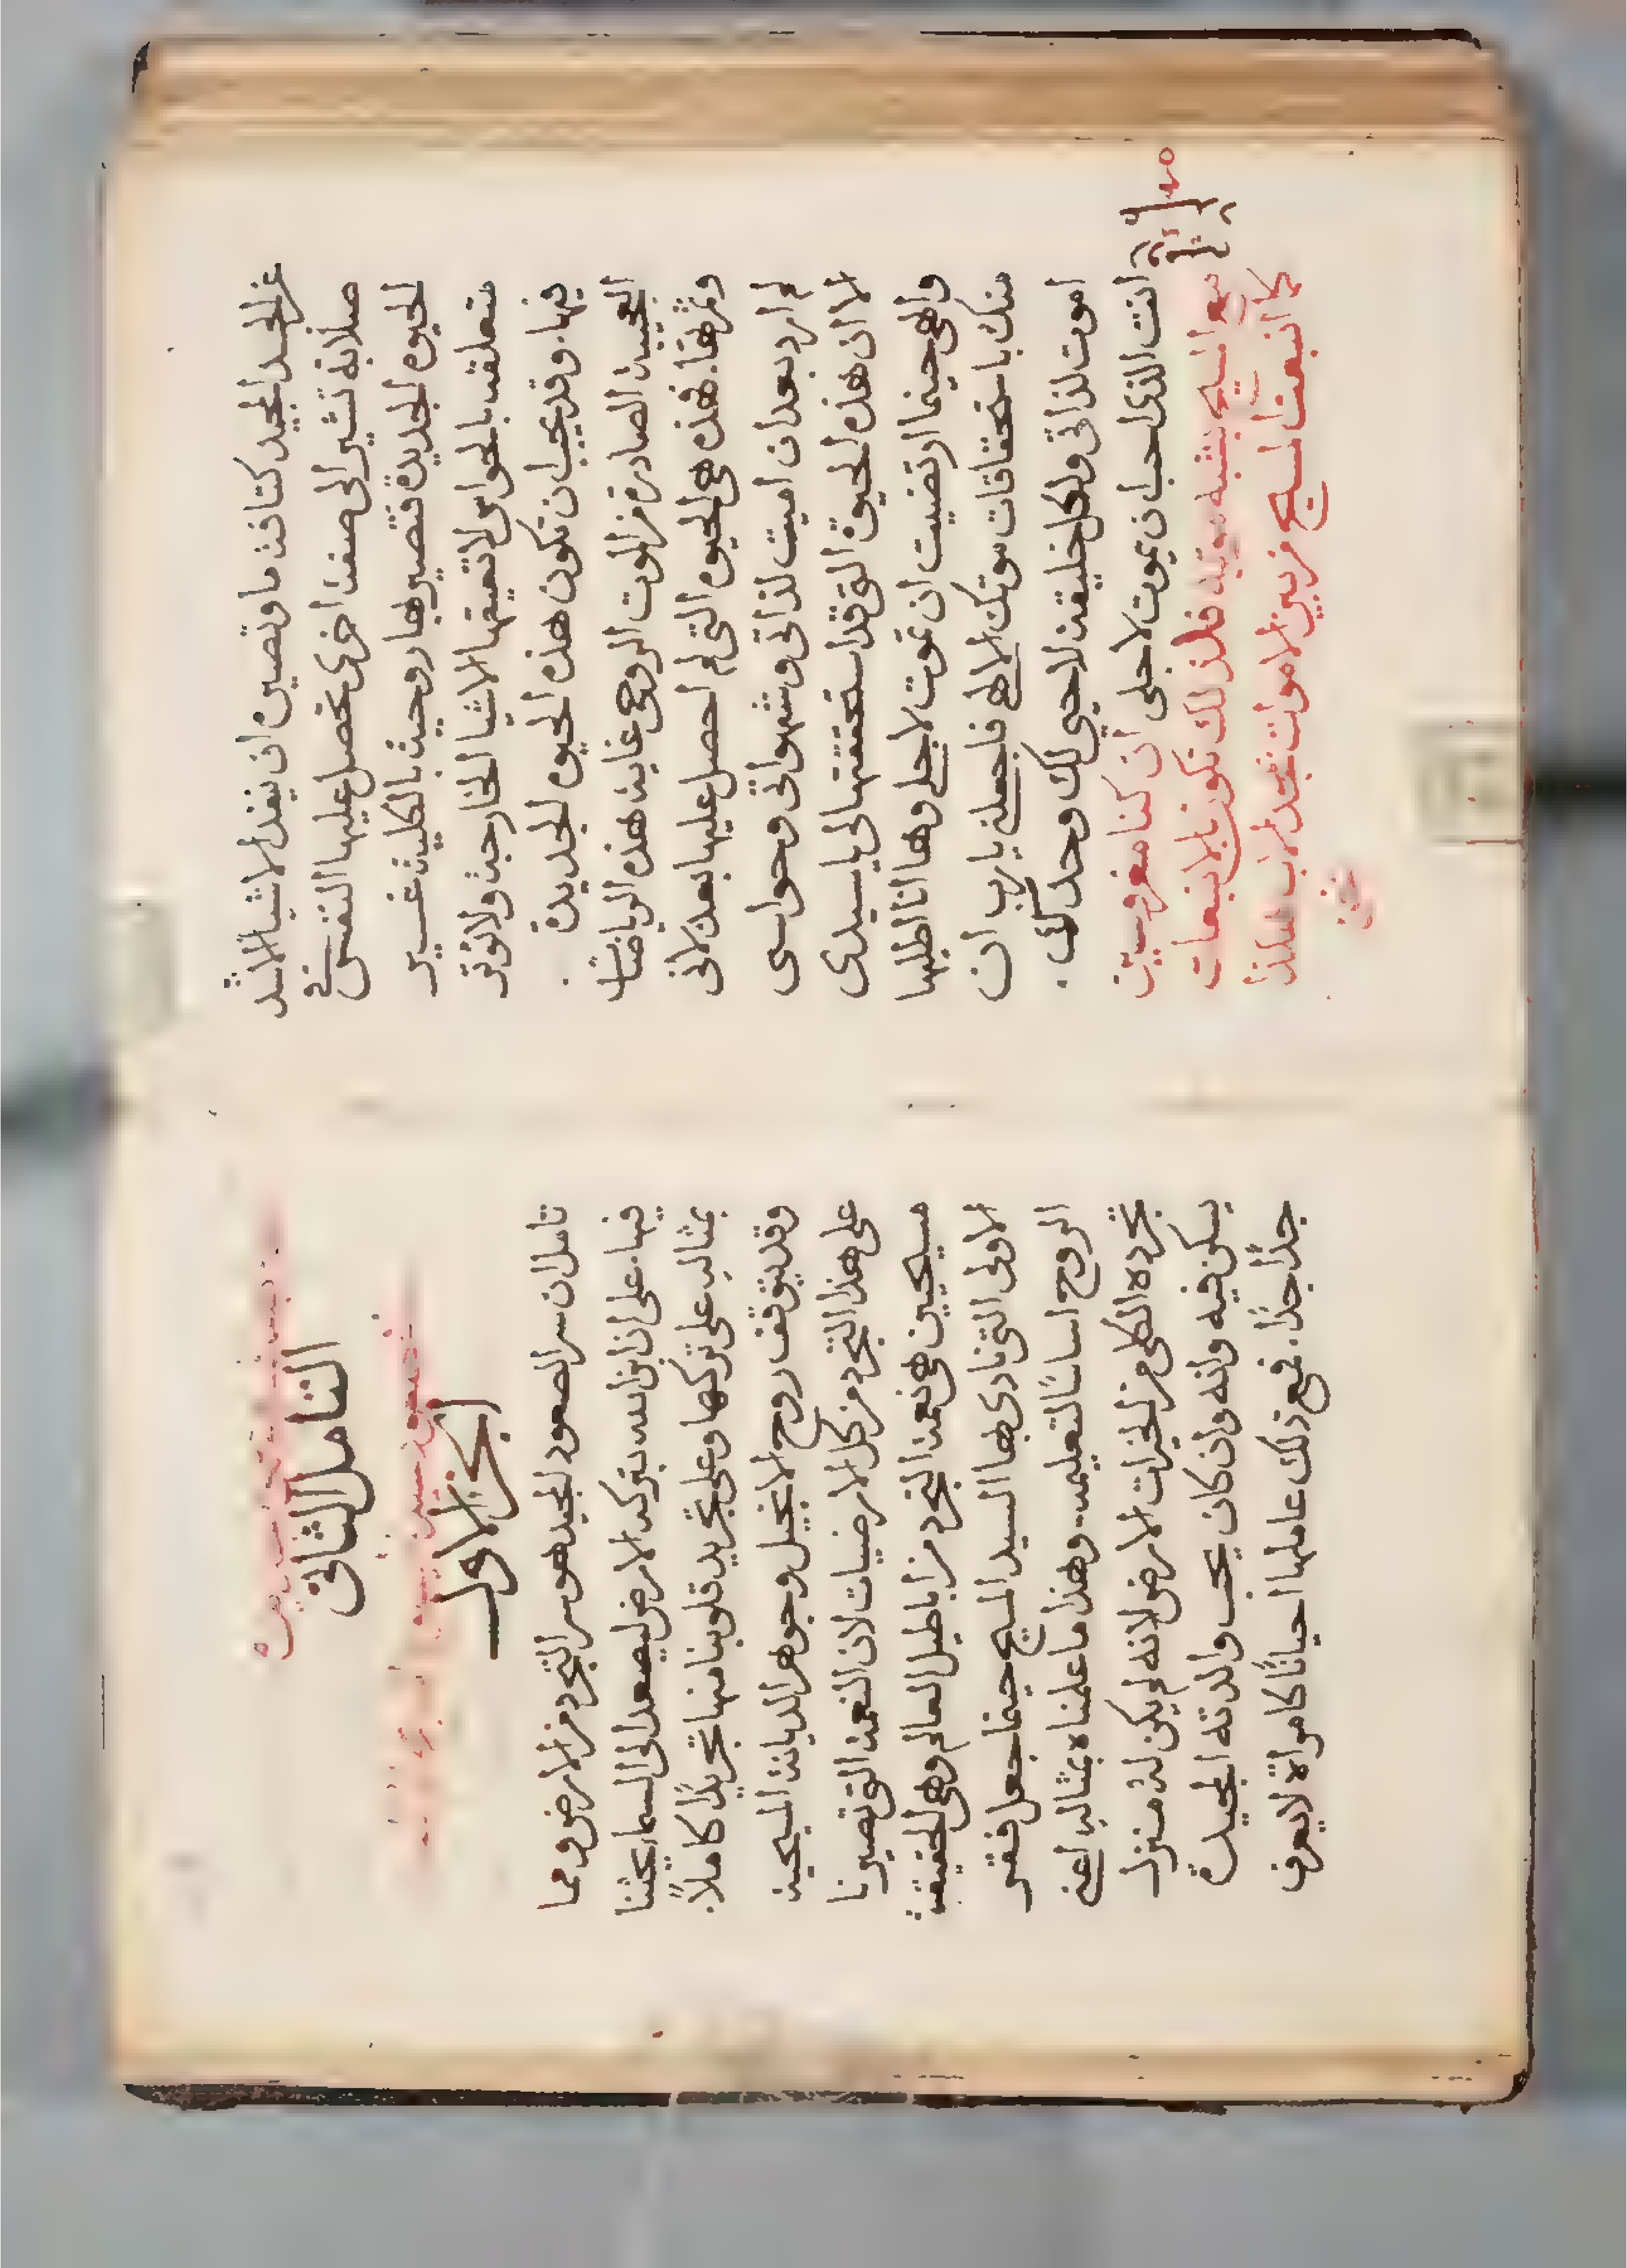 عن الجسد المجيد كثافته ما وتصيره ان ينفذ الاشيا الاشد
صلابة تشير الى صفة اخرى تحصل عليها النفس في
الحيوه الجديدة فتصيرها روحية بالكلية غير
متعلقه بالحواس لا تعيقها الاشيا الخارجة ولا تؤثر
فيها. وقد يجب ان تكون هذه الحيوه الجديدة
العجيبة الصادرة من الموت الروحي غاية هذه الرياضات
وثمرتها. فهذه هي الحيوه التي لم احصل عليها بعد لاني
لم ارد بعد ان اميت لذاتي وشهواتي وحواسي
الا ان هذه الحيوة التي قد استحقيتها لي يا سيدي
والهي حينما ارتضيت ان تموت لاجلي وها انا اطلبها
منك باستحقاقات موتك الالهي فاجعلني يا رب ان
اموت لذاتي ولكل خليقة لاحيي لك وحدك.
انت الذي احب ان يموت لاجلي ان كنا مغروسين
مع المسيح بشبه موته فلذلك نكون بالانبعاث
كما انبعث المسيح من بين الاموات بمجد الاب هكذا
نحن
التامل الثاني
الجز الاول
تامل ان سر الصعود المجيد هو سر التجرد من الارض ومما
فيها. على ان ابن الله بتركه الارض ليصعد الى السما يحثنا
بمثاله على تركها وعلى تجريد قلوبنا منها تجريدًا كاملاً.
وقد يتوقف روح الانجيل وجوهر الديانة المسيحية
على هذا التجرد من كل الارضيات لان النعمة التي تصيرنا
مسيحيين هي نعمة التجرد من اباطيل العالم وهي الحقيقة
الاولى التي نادى بها السيد المسيح حينما جعل فقر
الروح اساسًا لتعليمه. وهذا ما علمناه بمثاله اعني
تجرده الكلي من الخيرات الارض لانه لم يكن له منزل
يسكن فيه وانه وان كان يحب والدته المجيدة
جدًا جدًا. فمع ذلك عاملها احيانًا كامراة لا يعرف